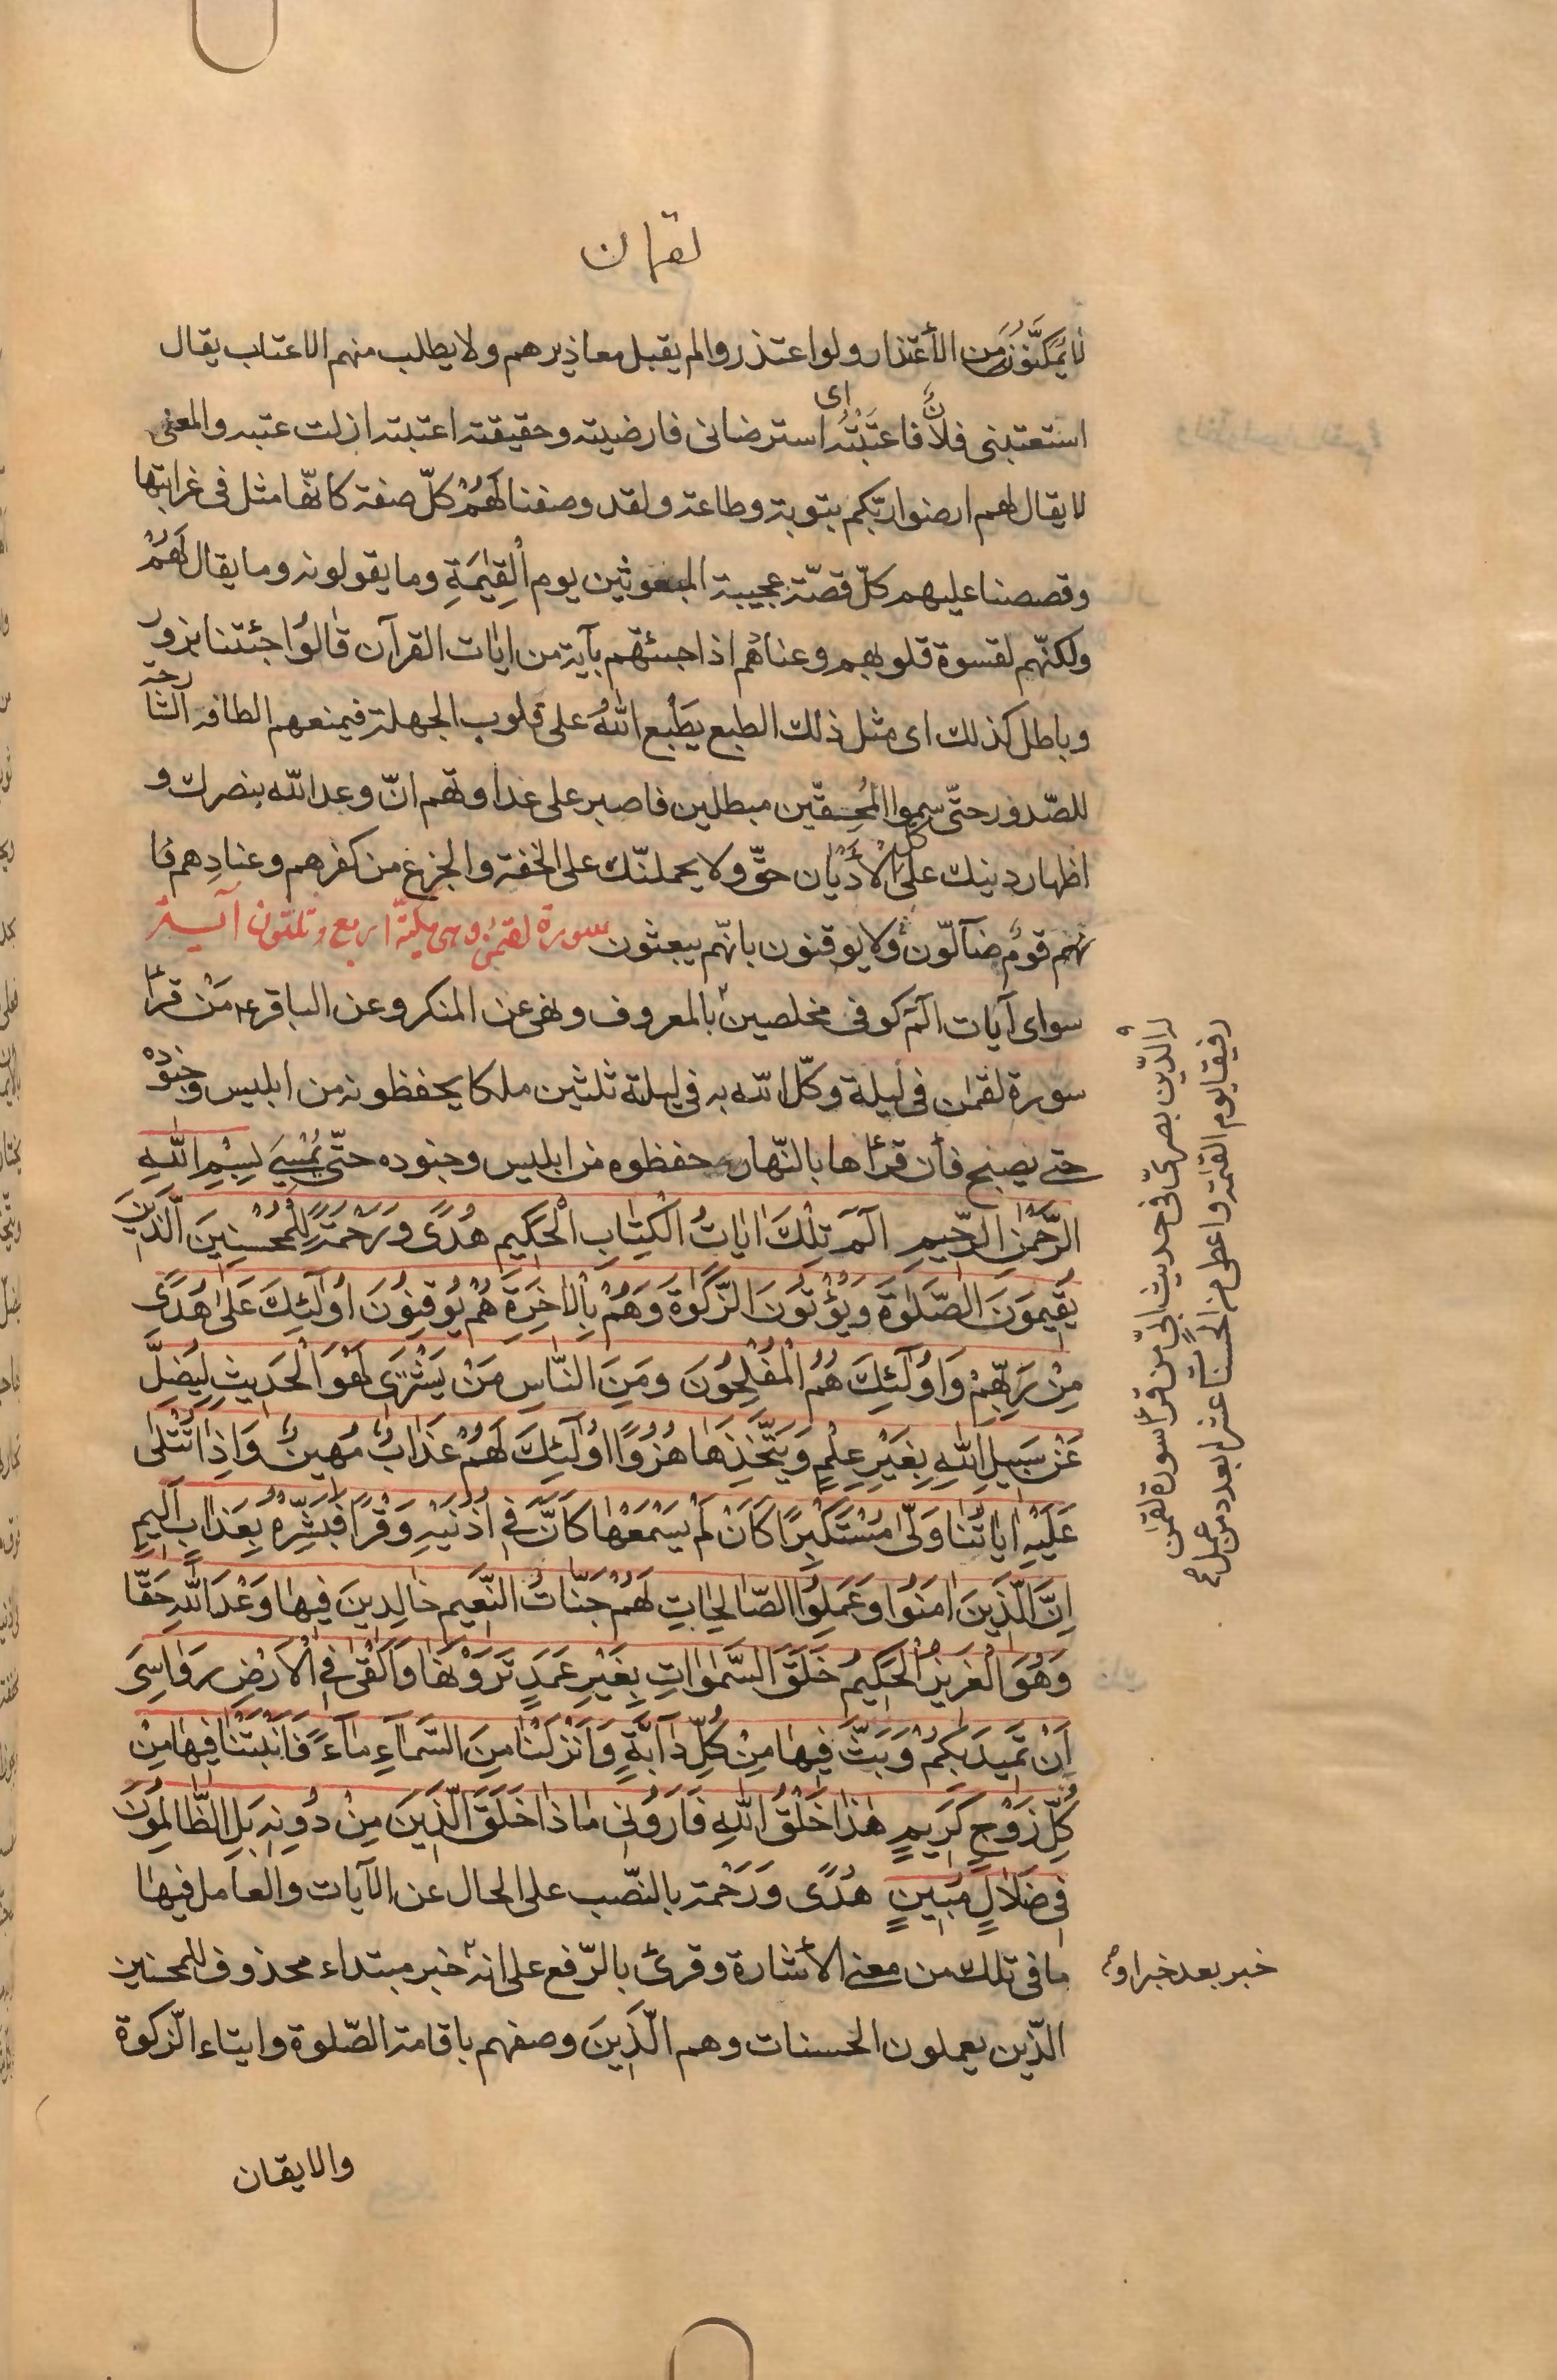 لقمان
لا يمكّنون من الأعتذار ولو اعتذروا لم يقبل معاذيرهم ولا يطلب منهم الاعتاب يقال
استعتبنى فلانٌ فاعتَبْتُه اى استرضانى فارضيته وحقيقته اعتبته ازلت عتبه والمعنى
لا يقال لهم ارضوا ربّكم بتوبة وطاعة ولقد وصفنا لَهُمْ كلّ صفة كانّها مثل فى غرابتها
وقصصنا عليهم كلّ قصّة عجيبة المبعوثين يوم الْقِيٰمَةِ وما يقولونه وما يقال لَهُمْ
ولكنّهم لقسوة قلوبهم وعنادهم اذا جئتهم بآية من ايٰات القرآن قٰالوُا جئتنا بزور
وباطل كذلك اى مثل ذلك الطبع يَطْبع اللهُ على قلوب الجهلة فيمنعهم الطافه الشّارحة
للصّدور حتّى سموا المُحِقّين مبطلين فاصبر على عداوتهم انّ وعد الله بنصرك و
اظهار دينك على كل الأَدْيٰان حقّ ولا يحملنّك على الخفة والجزع من كفرهم وعنادِهم فا
نهم قومٌ ضآلّون ولا يوقنون بانّهم يبعثون سورة لقمٰن وهى مكيّة اربع وثلثون آية
سواى آيات الٓمٓ كوفى مخلصين بالمعروف ونهى عن المنكر وعن الباقر ع مَنْ قرأ
سورة لقمٰن فى ليلة وكّل الله به فى ليلته ثلثين ملكا يحفظونه من ابليس وجنوده
حتى يصبح فأن قرأها بالنّهار حفظوه من ابليس وجنوده حتّى يُمْسِىَ بِسْمِ اللهِ
الرَّحْمٰنِ الرَّحيمِ الٓمٓ تِلْكَ ايٰاتُ الْكِتٰابِ الْحَكيمِ هُدًى وَرَحْمَةً لِلْمُحْسِنِينَ الَّذينَ
يُقيمُونَ الصَّلٰوةَ وَيُؤْتُونَ الزَّكٰوةَ وَهُمْ بِالْاٰخِرَةِ هُمْ يُوقِنُونَ اُولٰٓئِكَ عَلٰى هُدًى
مِنْ رَبِّهِمْ وَاُولٰٓئِكَ هُمُ الْمُفْلِحُونَ وَمِنَ النّٰاسِ مَنْ يَشْتَرى لَهْوَ الْحَديثِ لِيُضِلَّ
عَنْ سَبيلِ اللهِ بِغَيْرِ عِلْمٍ وَيَتَّخِذَهٰا هُزُوًا اُولٰٓئِكَ لَهُمْ عَذٰابٌ مُهينٌ وَاِذٰا تُتْلٰى
عَلَيْهِ ايٰاتُنٰا وَلّٰى مُسْتَكْبِرًا كَاَنْ لَمْ يَسْمَعْهٰا كَاَنَّ فى اُذُنَيْهِ وَقْرًا فَبَشِّرْهُ بِعَذٰابٍ اَليمٍ
اِنَّ الَّذينَ اٰمَنُوا وَعَمِلُوا الصّٰالِحٰاتِ لَهُمْ جَنّٰاتُ النَّعيمِ خٰالِدينَ فيهٰا وَعْدَ اللهِ حَقًّا
وَهُوَ الْعَزيزُ الْحَكيمُ خَلَقَ السَّمٰوٰاتِ بِغَيْرِ عَمَدٍ تَرَوْنَهٰا وَاَلْقٰى فِى الْاَرْضِ رَوٰاسِىَ
اَنْ تَميدَ بِكُمْ وَبَثَّ فيهٰا مِنْ كُلِّ دٰآبَّةٍ وَاَنْزَلْنٰا مِنَ السَّمٰآءِ مٰآءً فَاَنْبَتْنٰا فيهٰا مِنْ
كُلِّ زَوْجٍ كَريمٍ هٰذٰا خَلْقُ اللهِ فَاَرُونى مٰاذٰا خَلَقَ الَّذينَ مِنْ دُونِهِ بَلِ الظّٰالِمُونَ
فى ضَلٰالٍ مُبينٍ هُدًى وَرَحْمة بالنّصب على الحال عن الآيات والعامل فيهٰا
مٰا فى تلك من معنى الأشارة وقرئ بالرّفع على انه خبر مبتداء محذوف للمحسنين
الّذين يعملون الحسنات وهم الَّذينَ وصفهم باقامة الصّلوة وايتاء الزّكوة
والايقان
خبر بعد خبر او
فى حديث ابىّ من قرأ سورة لقمٰن
رفيقا يوم القيٰمة واعطى من الحسنات عشرا بعدد من عمل